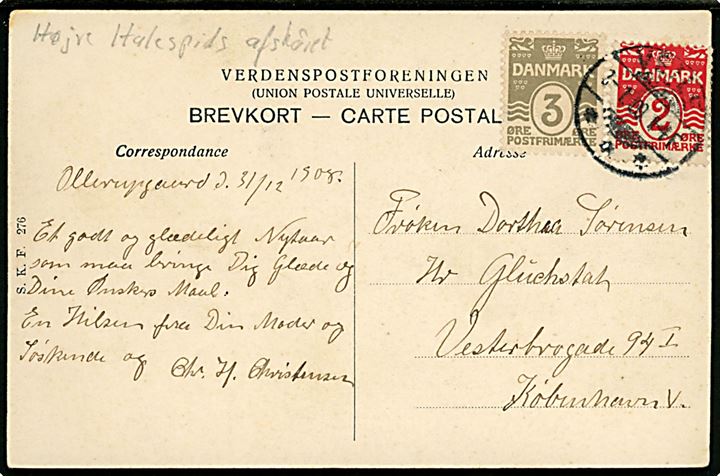 Højre Halespids afskåret
VERDENSPOSTFORENINGEN
(UNION POSTALE UNIVERSELLE)
BREVKORT — CARTE POSTAL
DANMARK
3
ØRE ØRE
POSTFRIMÆRKE
DANMARK
2
ØRE ØRE
POSTFRIMÆRKE
Correspondance
Adresse
Ollerupgaard d. 31/12 1908.
Et godt og glædeligt Nytaar
som maa bringe Dig Glæde og
Dine Ønskers Maal.
En Hilsen fra Din Moder og
Søskende og
Chr. H. Christensen
Frøken Dorthea Sørensen
Hr Glückstat
Vesterbrogade 94 I
København V.
S. K. F. 276